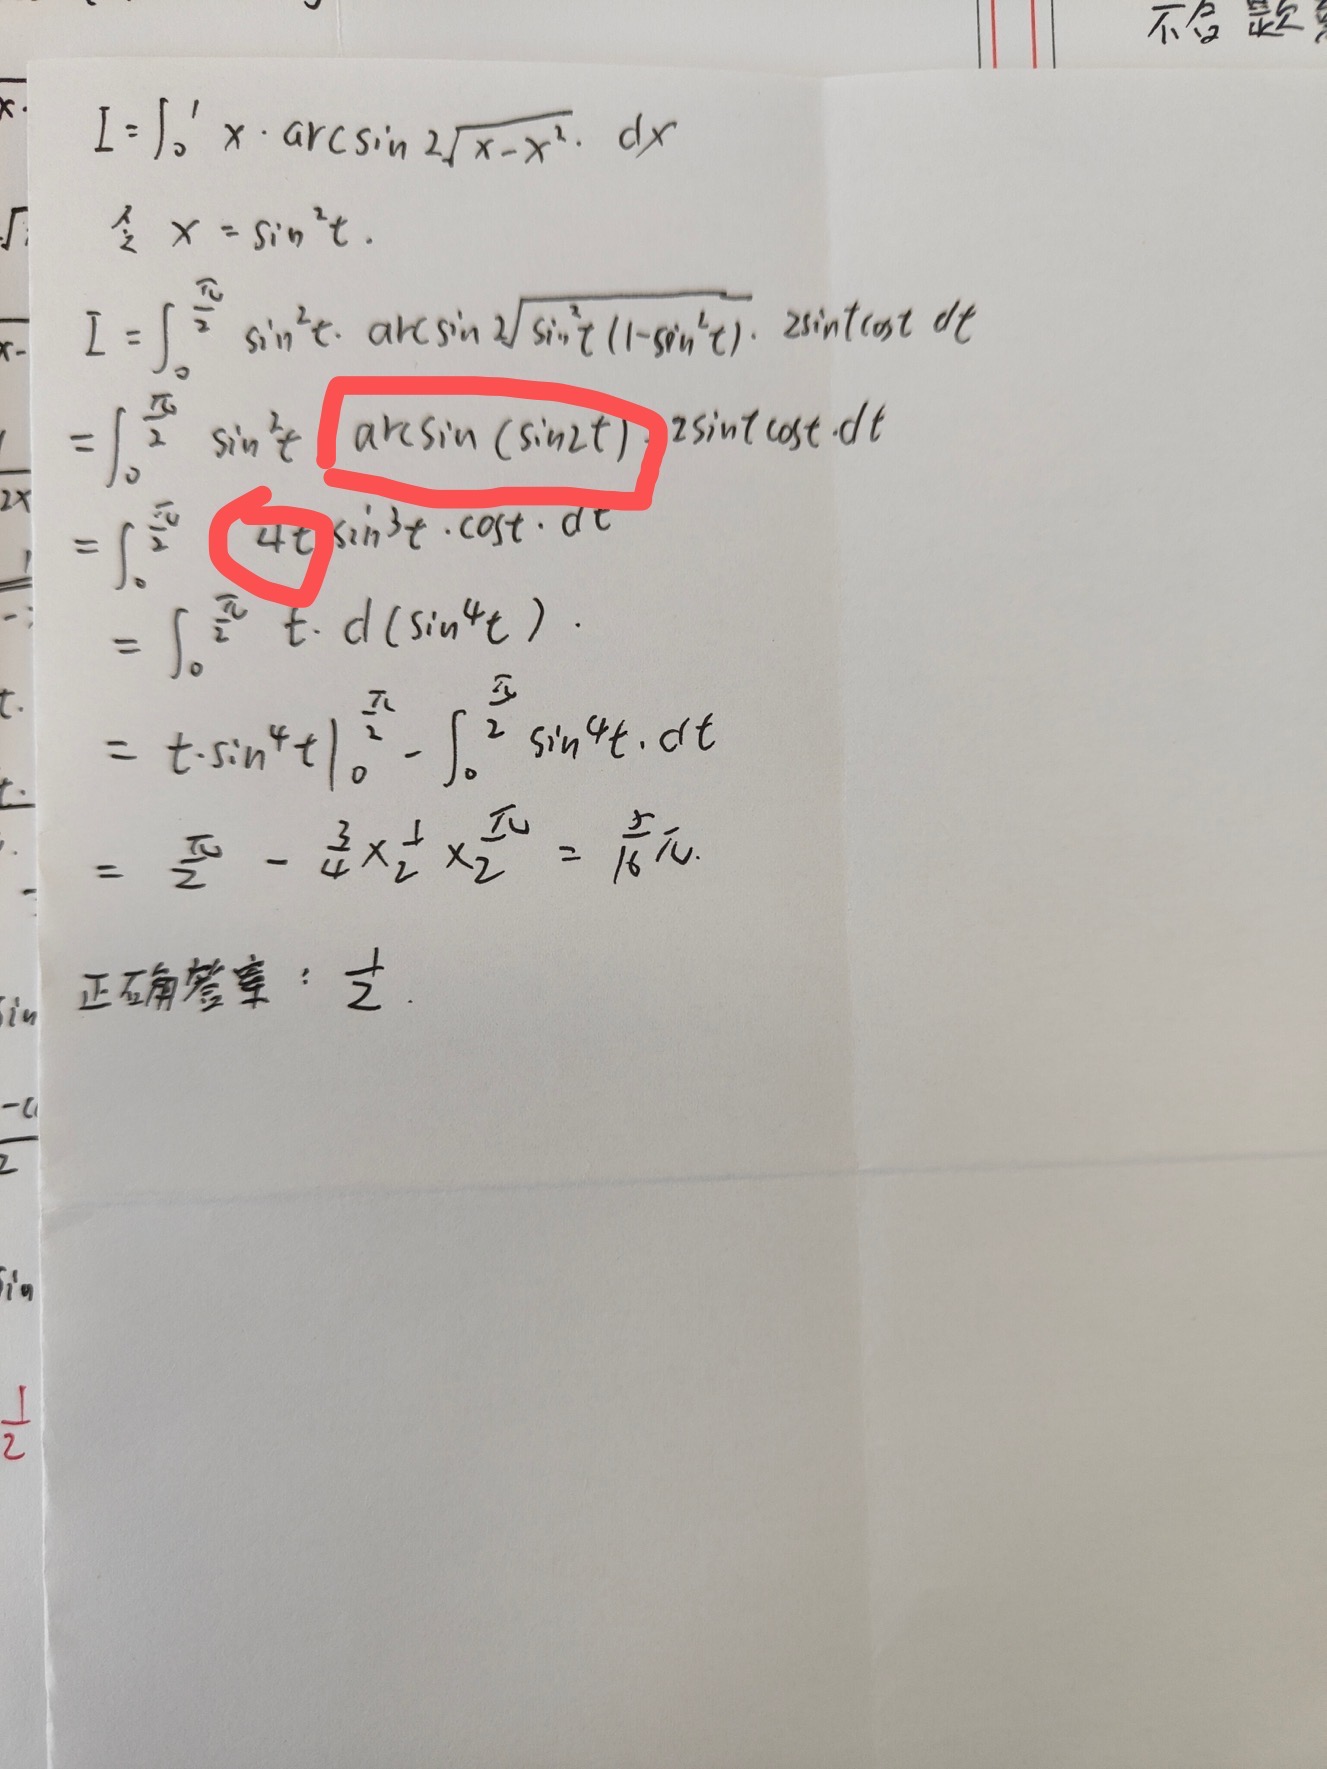 不合题
I = ∫₀¹ x · arcsin 2√(x-x²) · dx
令 x = sin²t .
I = ∫₀^(π/2) sin²t · arcsin 2√(sin²t (1-sin²t)) · 2sint cost dt
= ∫₀^(π/2) sin²t arcsin (sin2t) · 2sint cost · dt
= ∫₀^(π/2) 4t sin³t · cost · dt
= ∫₀^(π/2) t · d(sin⁴t) .
= t·sin⁴t |₀^(π/2) - ∫₀^(π/2) sin⁴t · dt
= π/2 - 3/4 × 1/2 × π/2 = 5/16 π.
正确答案 : 1/2 .
1/2